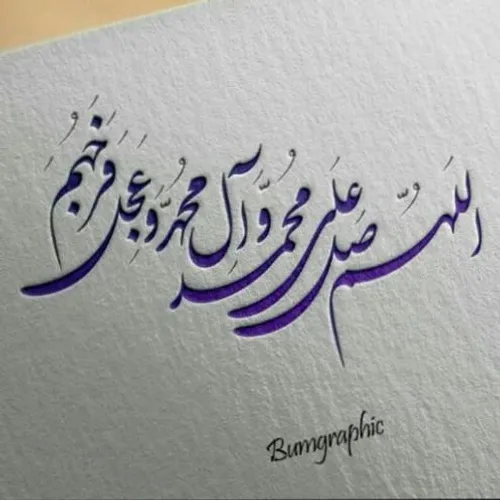 اللهم صل علی محمد وآل محمد وعجل فرجهم
Bumgraphic